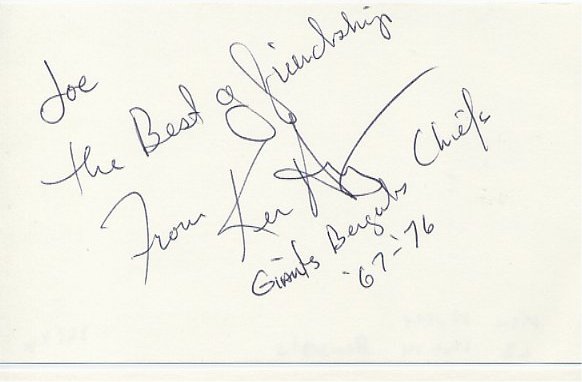 Joe
the Best of friendship
From Ken
Giants Bengals Chiefs
'67-'76